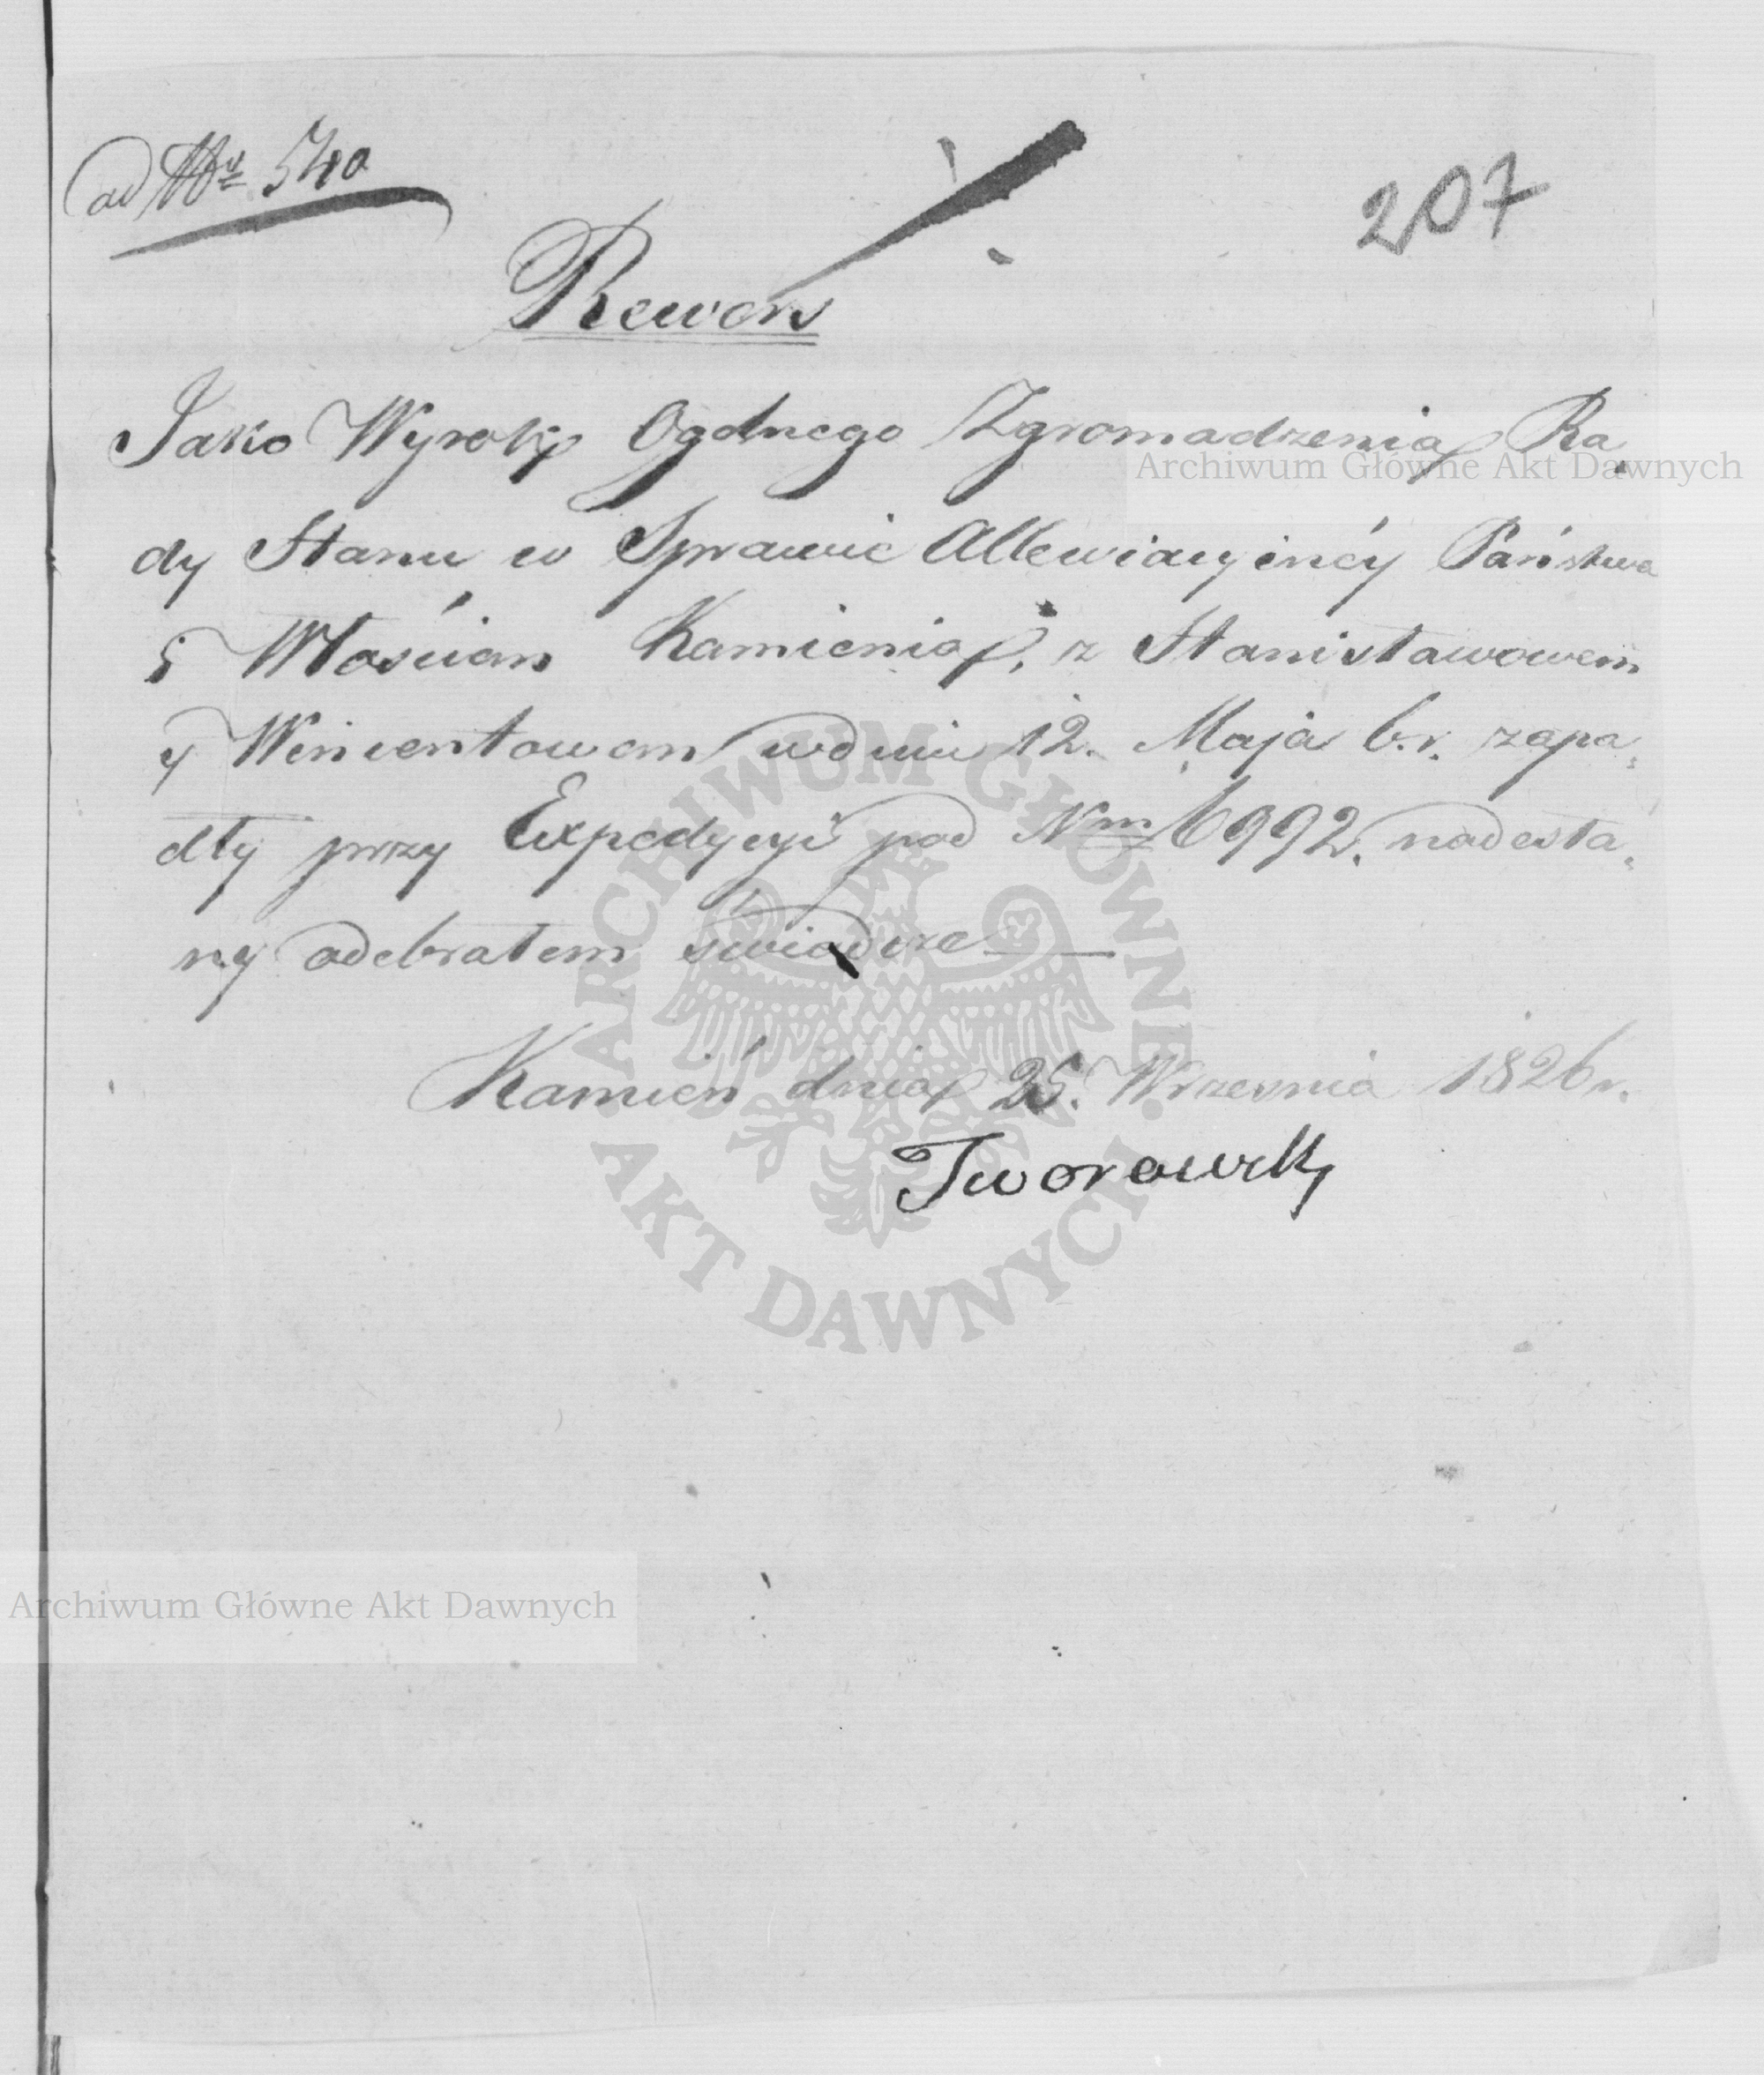 ad Nr 540
207
Rewers
Jako Wyrok Ogolnego Zgromadzenia Ra
Archiwum Główne Akt Dawnych
dy Stanu w Sprawie Allewiacyinéy Państwa
i Włościan Kamienia, z Stanisławowem
y Wincentowem w dniu 12. Maja b.r. zapa„
dły przy Expedycyi pod Nrm 6992. nadesła„
ny odebrałem swiadcze
Kamień dnia 25. Wrzesnia 1826 r.
Tworowski
ARCHIWUM GŁÓWNE · AKT DAWNYCH ·
Archiwum Główne Akt Dawnych